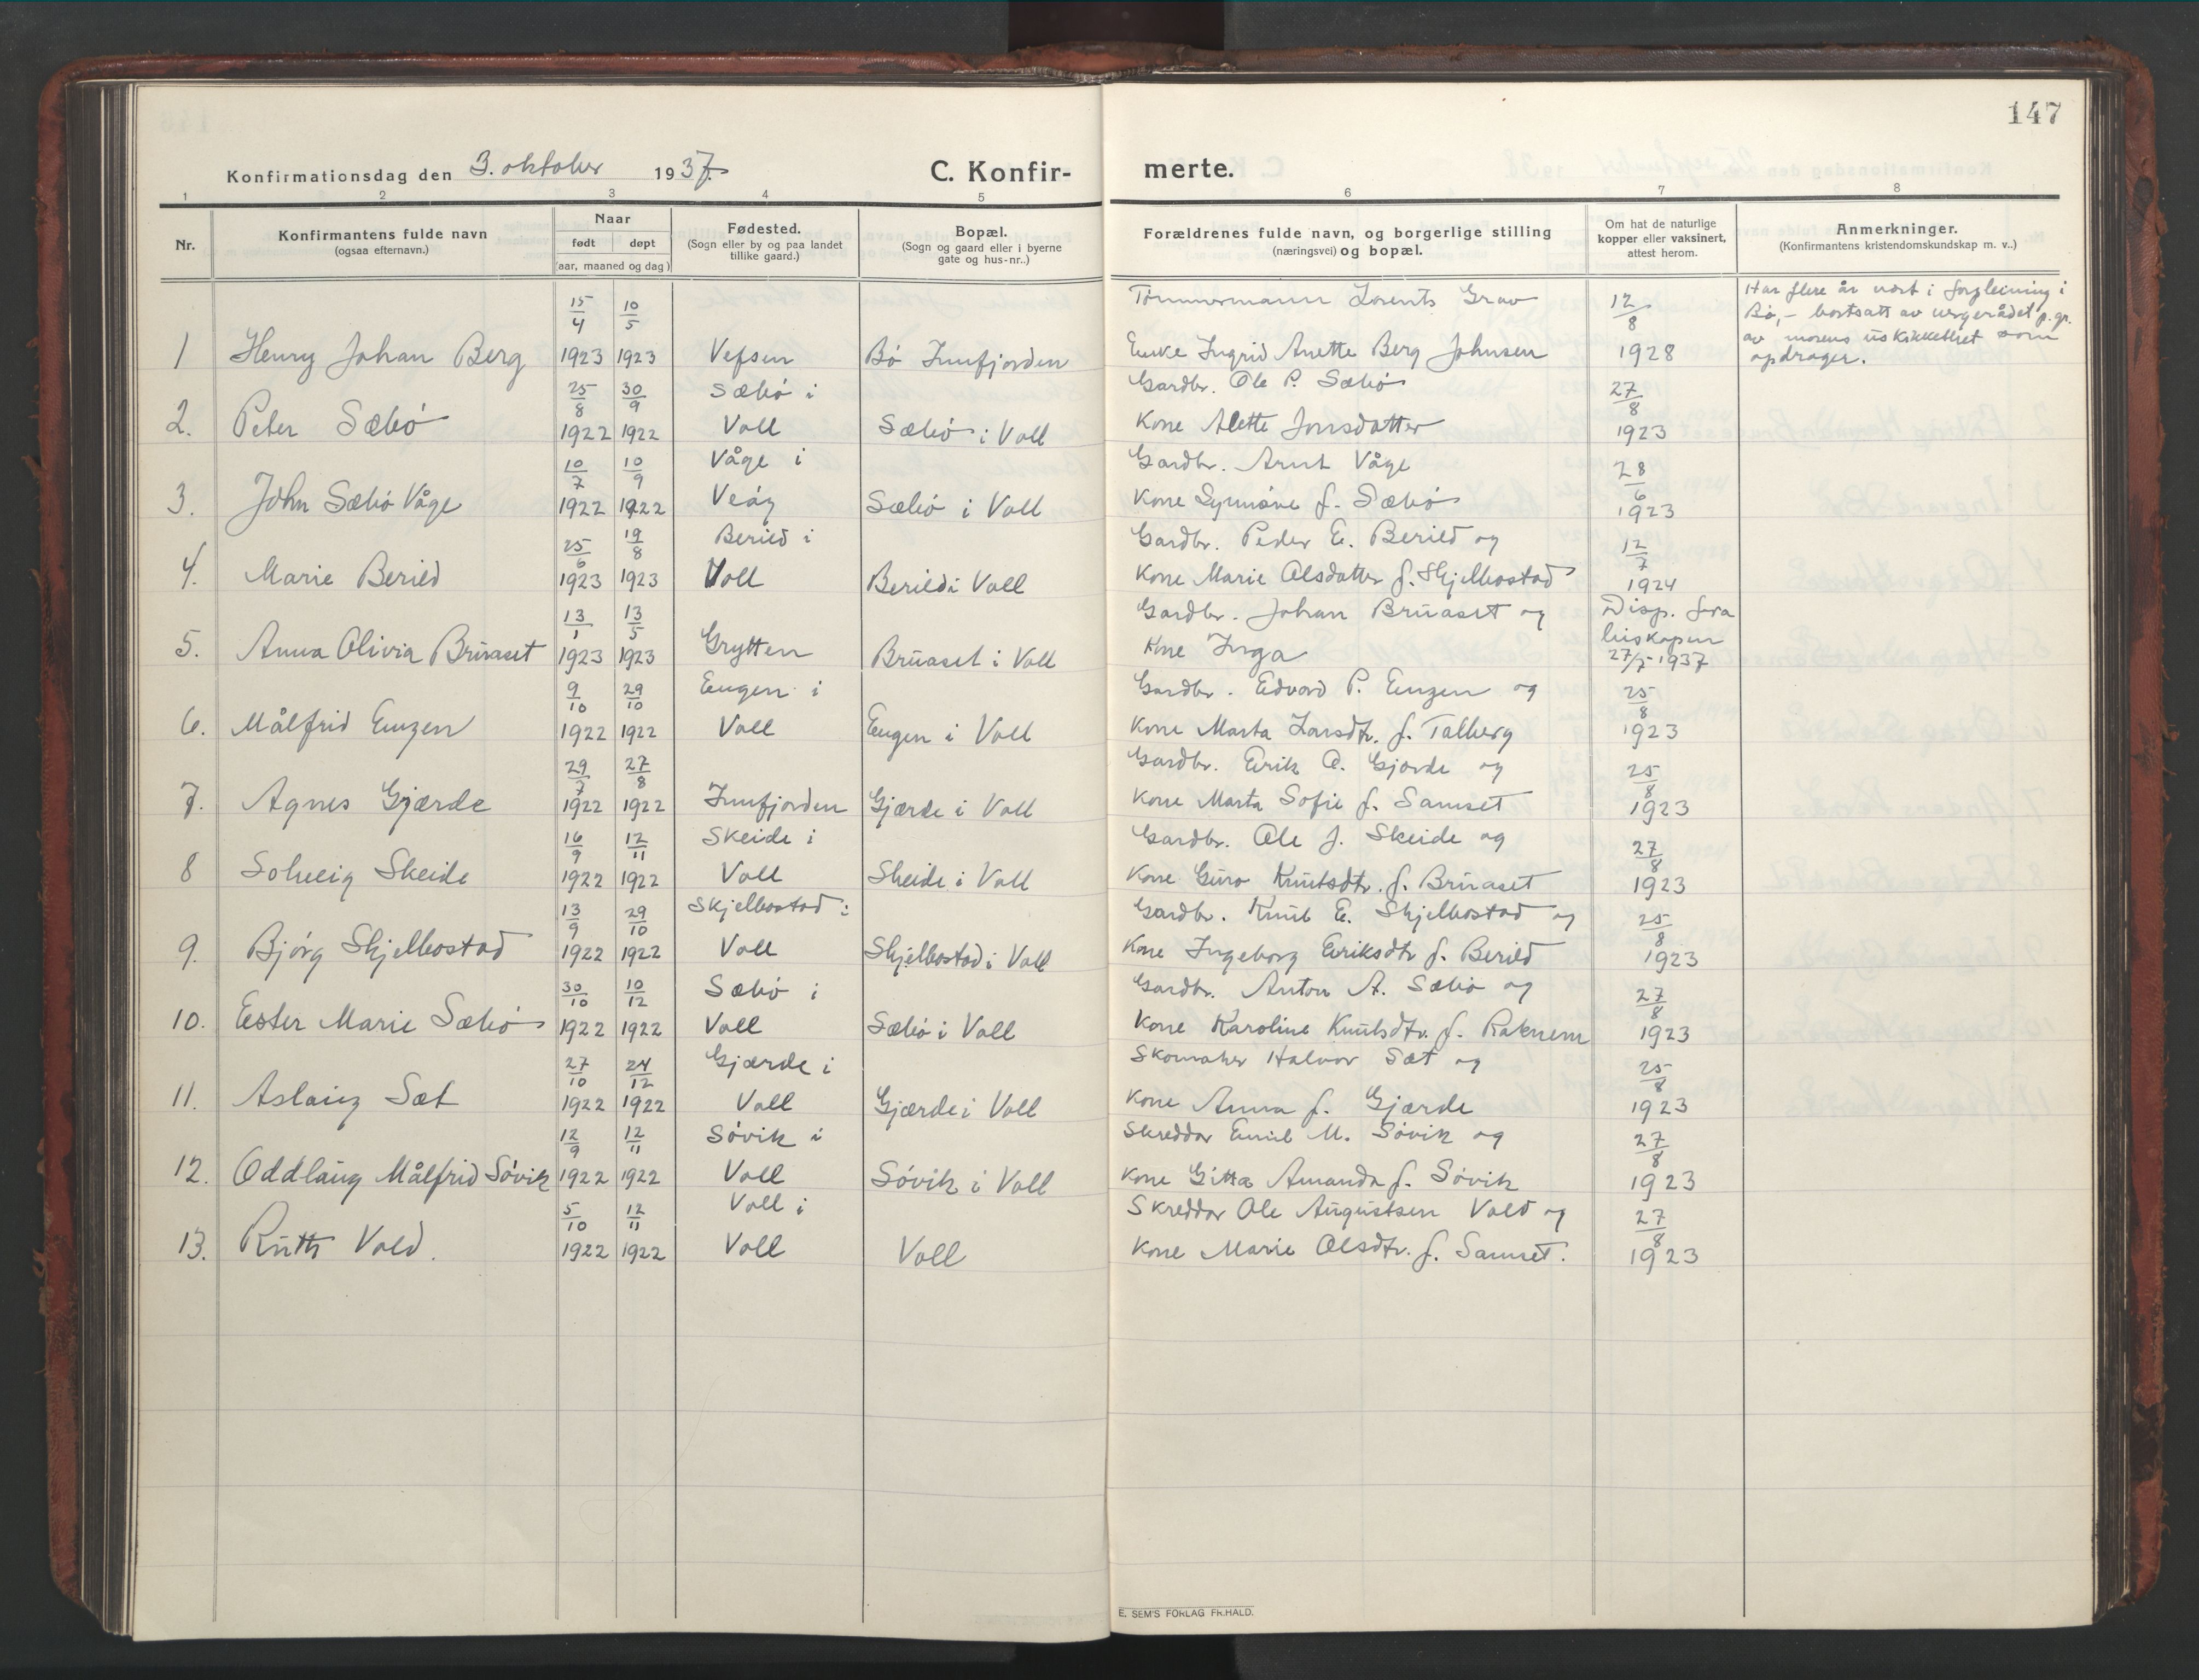 147
Konfirmationsdag den 3. oktober 1937. C. Konfir- merte.
1 2 3 4 5 6 7 8
Nr. Konfirmantens fulde navn (ogsaa efternavn.) Naar født døpt (aar, maaned og dag) Fødested. (Sogn eller by og paa landet tillike gaard.) Bopæl. (Sogn og gaard eller i byerne gate og hus-nr..) Forældrenes fulde navn, og borgerlige stilling (næringsvei) og bopæl. Om hat de naturlige kopper eller vaksinert, attest herom. Anmerkninger. (Konfirmantens kristendomskundskap m. v..)
15/4 10/5 Tømmermann Lorents Grav 12/8 Har flere år vært i forpleining i
Bø, - bortsatt av vergerådet p. gr.
1 Henry Johan Berg 1923 1923 Vefsen Bø Innfjorden Enke Ingrid Anette Berg Johnsen 1928 av morens uskikkethet som
opdrager.
25/8 30/9 Sæbø i Gardbr. Ole P. Sæbø 27/8
2. Peter Sæbø 1922 1922 Voll Sæbø i Voll Kone Alette Jonsdatter 1923
10/7 10/9 Våge i Gardbr. Arnt Våge 28/6
3. John Sæbø Våge 1922 1922 Veøy Sæbø i Voll Kone Synnøve f. Sæbø 1923
25/6 19/8 Berild i Gardbr. Peder E. Berild og 12/7
4. Marie Berild 1923 1923 Voll Berild i Voll Kone Marie Olsdatter f. Skjelbostad 1924
13/1 13/5 Gardbr. Johan Bruaset og Disp. fra
5. Anna Olivia Bruaset 1923 1923 Grytten Bruaset i Voll Kone Inga biskopen
27/5 1937
9/10 29/10 Engen i Gardbr. Edvard P. Engen og 25/8
6. Målfrid Engen 1922 1922 Voll Engen i Voll Kone Marta Larsdtr. f. Talberg 1923
29/7 27/8 Gardbr. Eirik O. Gjørde og 25/8
7. Agnes Gjærde 1922 1922 Innfjorden Gjærde i Voll Kone Marta Sofie f. Samset 1923
16/9 12/11 Skeide i Gardbr. Ole J. Skeide og 27/8
8 Solveig Skeide 1922 1922 Voll Skeide i Voll Kone Guro Knutsdtr. f. Bruaset 1923
13/9 29/10 Skjelbostad i Gardbr. Knut E. Skjelbostad og 25/8
9. Bjørg Skjelbostad 1922 1922 Voll Skjelbostad i Voll Kone Ingeborg Eriksdtr f. Berild 1923
30/10 10/12 Sæbø i Gardbr. Anton A. Sæbø og 27/8
10. Ester Marie Sæbø 1922 1922 Voll Sæbø i Voll Kone Karoline Knutsdtr. f. Raknem 1923
27/10 24/12 Gjærde i Skomaker Halvor Sæt og 25/8
11. Aslaug Sæt 1922 1922 Voll Gjærde i Voll Kone Anna f. Gjærde 1923
12/9 12/11 Søvik i Skreddar Emil M. Søvik og 27/8
12. Oddlaug Målfrid Søvik 1922 1922 Voll Søvik i Voll Kone Gitta Amanda f. Søvik 1923
5/10 12/11 Voll i Skreddar Ole Augustsen Vold og 27/8
13. Ruth Vold. 1922 1922 Voll Voll Kone Marie Olsdtr. f. Samset. 1923
E. SEM'S FORLAG FR.HALD.